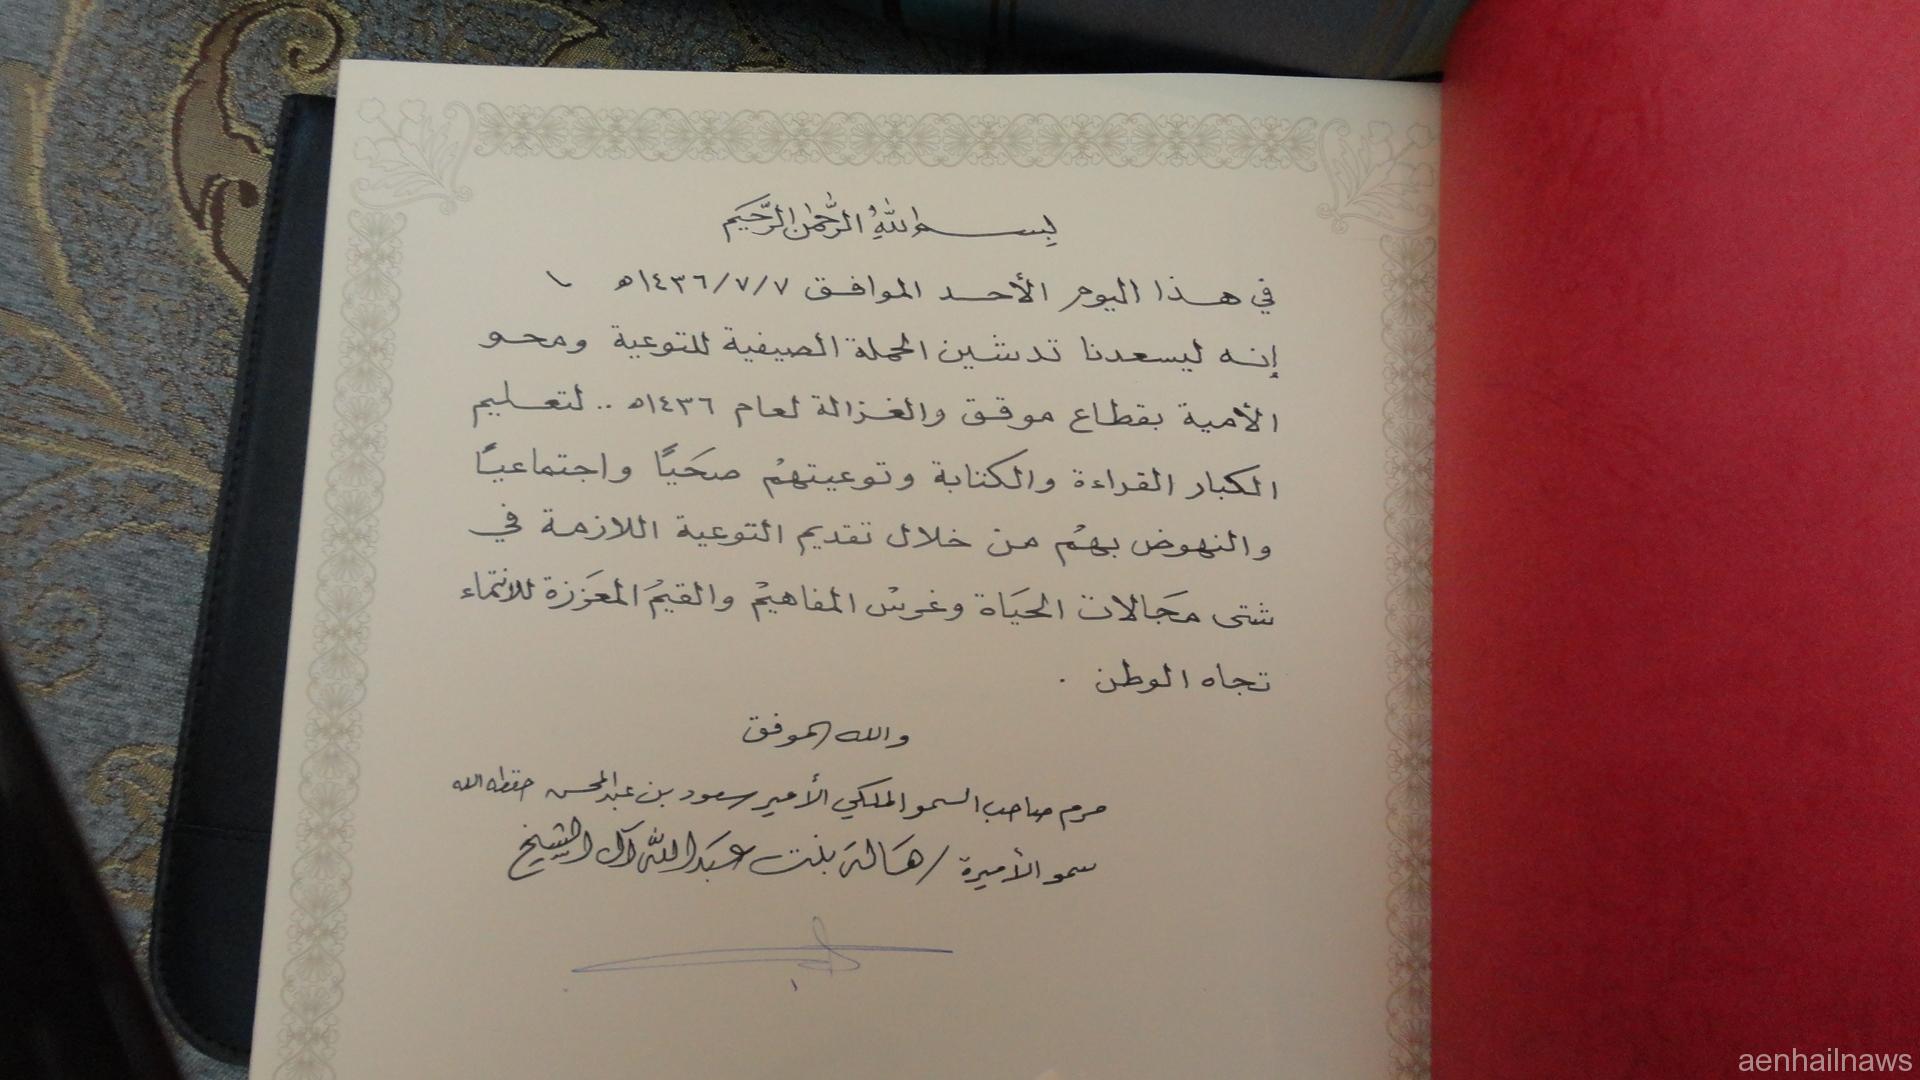 بِسم اللهِ الرَّحمن الرَّحيم
في هذا اليوم الأحد الموافق ١٤٣٦/٧/٧هـ
إنه ليسعدنا تدشين الحملة الصيفية للتوعية ومحو
الأمية بقطاع موقق والغزالة لعام ١٤٣٦هـ .. لتعليم
الكبار القراءة والكتابة وتوعيتهمْ صحَيًا واجتماعيًا
والنهوض بهمْ من خلال تقديم التوعية اللازمة في
شتى مجَالات الحيَاة وغرسْ المفاهيمْ والقيمْ المعَززة للانتماء
تجاه الوطن .
والله الموفق
حرم صاحب السمو الملكي الأمير سعود بن عبدالمحسن حفظه الله
سمو الأميرة / هَالة بنت عبدالله آل الشيخ
aenhailnaws